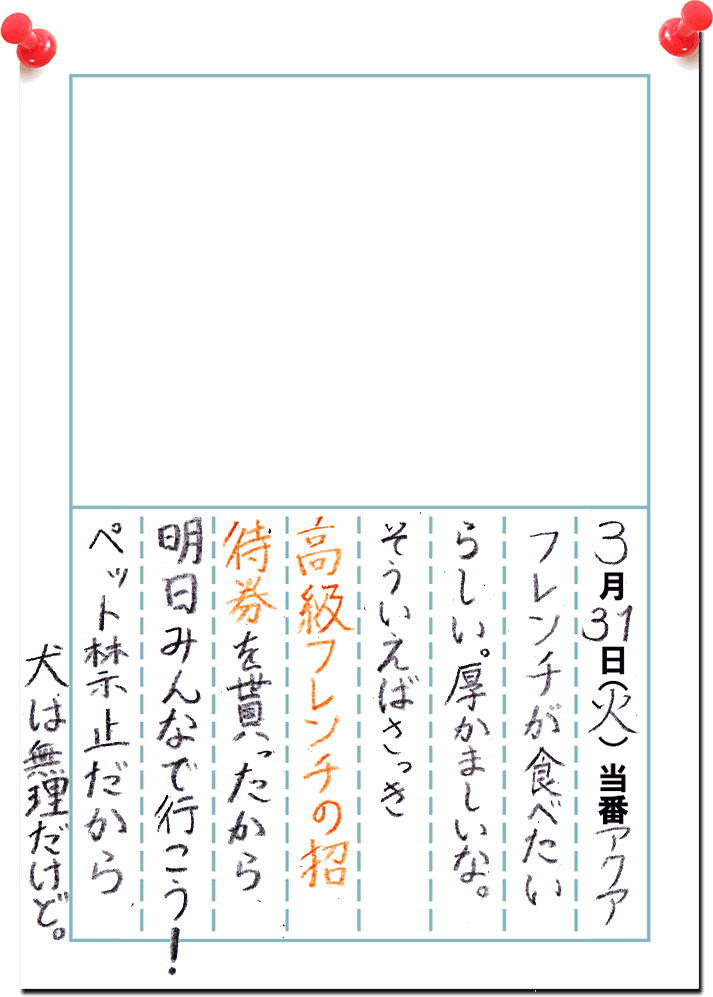 3月31日(火) 当番アクア
フレンチが食べたい
らしい。厚かましいな。
そういえばさっき
高級フレンチの招
待券を貰ったから、
明日みんなで行こう！
ペット禁止だから
犬は無理だけど。